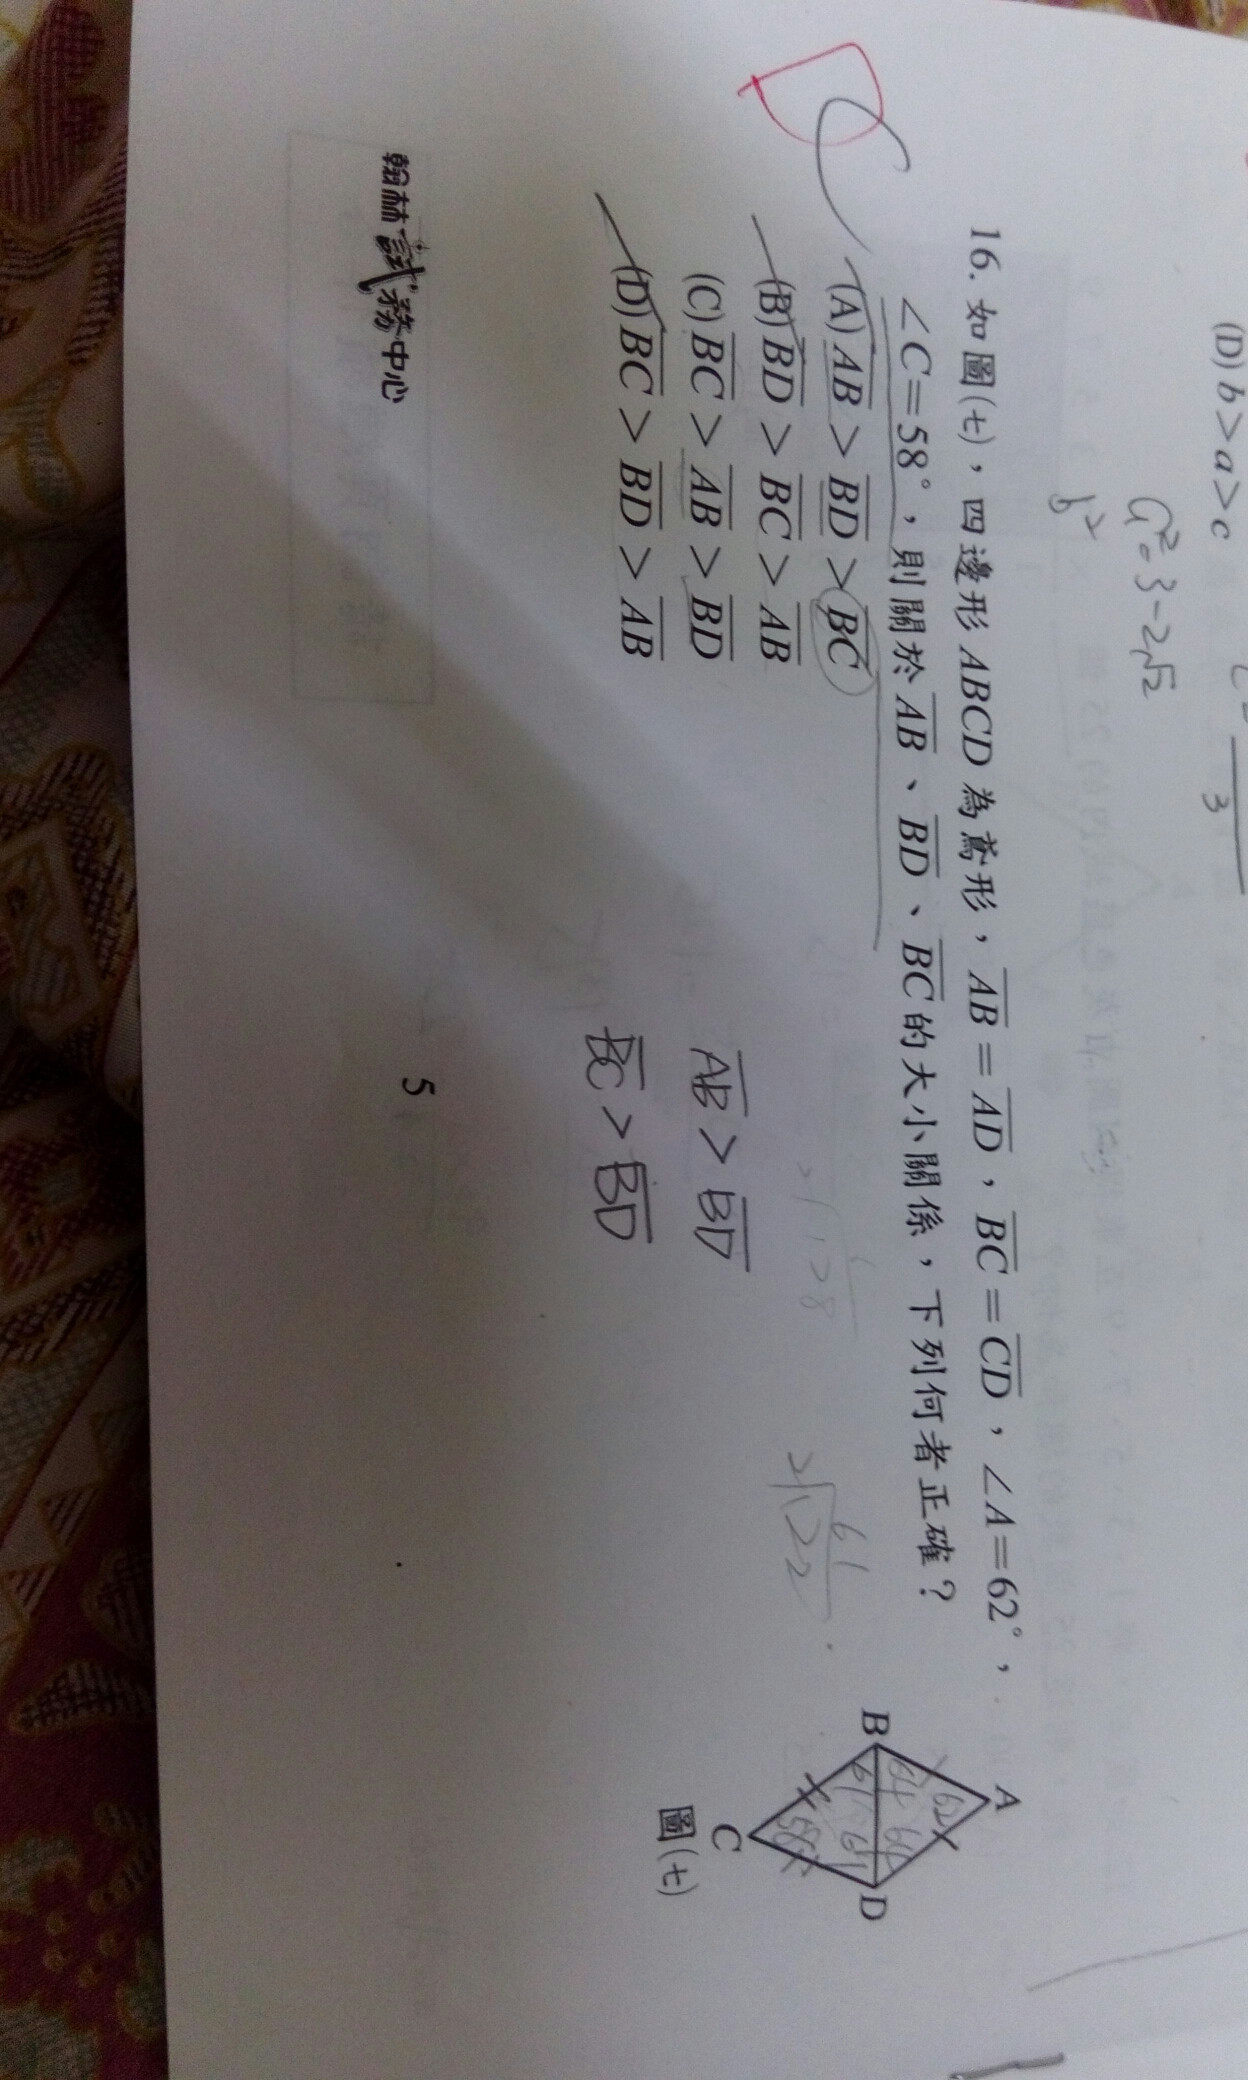 (D) b > a > c
3
a²=3-2√2
b²
16. 如圖(七),四邊形 ABCD 為鳶形,AB = AD,BC = CD,∠A=62°,
∠C=58°,則關於 AB、BD、BC 的大小關係,下列何者正確?
(A) AB > BD > BC
(B) BD > BC > AB
(C) BC > AB > BD
(D) BC > BD > AB
D
C
61
2√122
AB > BD
BC > BD
A
62
B
D
61
58
C
圖(七)
翰林試務中心
5